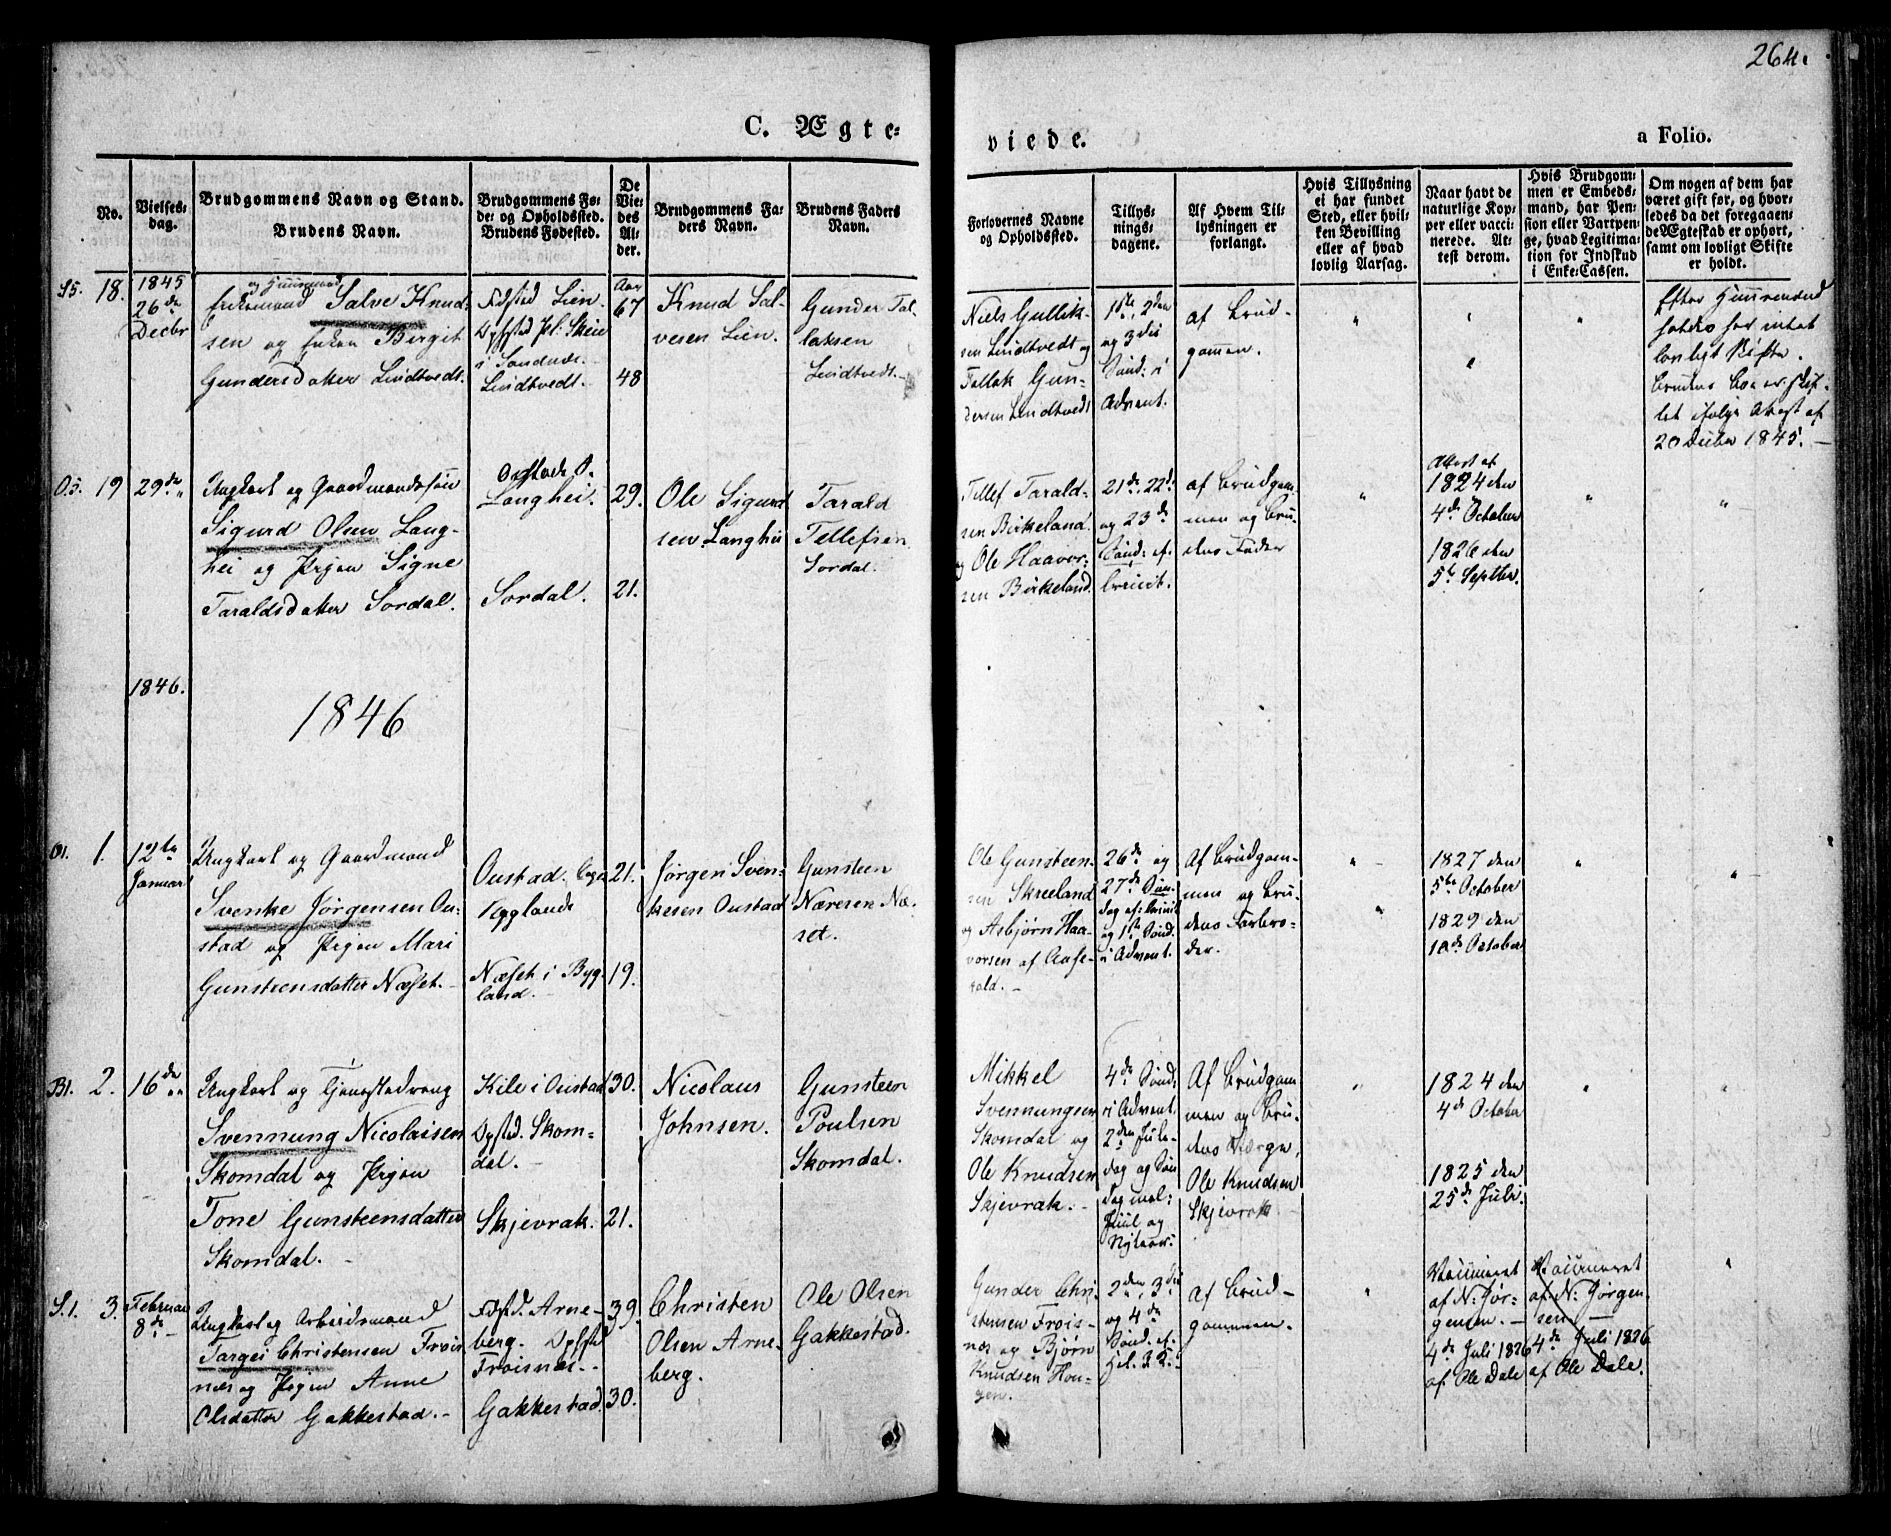 264.
C. Ægte-
viede.
a Folio.
No.
Vielses-
dag.
Brudgommens Navn og Stand.
Brudens Navn.
Brudgommens Fø-
de- og Opholdssted.
Brudens Fødested.
De
Vie-
des
Al-
der.
Brudgommens Fa-
ders Navn.
Brudens Faders
Navn.
Forlovernes Navne
og Opholdssted.
Tillys-
nings-
dagene.
Af Hvem Til-
lysningen er
forlangt.
Hvis Tillysning
ei har fundet
Sted, eller hvil-
ken Bevilling
eller af hvad
lovlig Aarsag.
Naar havt de
naturlige Kop-
per eller vacci-
nerede. At-
test derom.
Hvis Brudgom-
men er Embeds-
mand, har Pen-
sion eller Vartpen-
ge, hvad Legitima-
tion for Indskud
i Enke-Cassen.
Om nogen af dem har
været gift før, og hvor-
ledes da det foregaaen-
de Ægteskab er ophørt,
samt om lovligt Skifte
er holdt.
S5. 18.
1845
26de
Decbr
og Huusmand
Enkemand Salve Knud-
sen og Enken Birgit
Gundersdatter Lindtvedt.
Fødsted Lien.
Opsted Pl. Skeie
i Sandnæs.
Lindtvedt.
Aar
67
48
Knud Sal-
vesen Lien.
Gunder Tal-
laksen
Lindtvedt.
Niels Gullik-
sen Lindtvedt og
Tallak Gun-
dersen Lindtvedt
1ste, 2den
og 3die
Sønd: i
Advent.
af Brud-
gommen.
Efter Huusmand
holdes for intet
lovligt Skifte.
Brudens Boe er skif-
tet ifølge Attest af
20 Decbr 1845.
O5. 19
29de
Ungkarl og Gaardmandssøn
Sigurd Olsen Lang-
hei og Pigen Signe
Taraldsdatter Sordal.
Langhei.
Sordal.
29.
21.
Ole Sigurd
sen Langhei
Tarald
Tellefsen
Sordal.
Tellef Tarald-
sen Birkeland.
og Ole Haavor-
sen Birkeland.
21de, 22de
og 23de
Sønd: ef:
Trinit.
af Brudgom-
men og Bru-
dens Fader
Attest af
1824 den
4de October
1826 den
5te Septbr.
1846.
1846
O1. 1.
12te
Januar
Ungkarl og Gaardmand
Svenke Jørgensen Ou-
stad og Pigen Mari
Gunsteensdatter Næset.
Oustad.
Bygland
Næset i Byg-
land.
21.
19.
Jørgen Sven-
kesen Oustad
Gunsteen
Næresen Næ-
set.
Ole Gunsteen-
sen Skreeland
og Asbjørn Haa-
vorsen af Aase-
rald.
26de og
27de Søn-
dag ef: Trinit
og 1ste Sønd.
i Advent.
Af Brudgom-
men og Bru-
dens Farbro-
der.
1827 den
5te October
1829 den
10de October
B1. 2.
16de
Ungkarl og Tjenestedreng
Svennung Nicolaisen
Skomdal og Pigen
Tone Gunsteensdatter
Skomdal.
Kile i Oustad
Opsted. Skom-
dal.
Skjevrak.
30.
21.
Nicolaus
Johnsen.
Gunsteen
Poulsen
Skomdal.
Mikkel
Svennungsen
Skomdal og
Ole Knudsen
Skjevrak.
4de Sønd:
i Advent.
2den Jule-
dag og Søn
dag mel:
Juul og
Nytaar:
Af Brudgom-
men og Bru-
dens Værge,
Ole Knudsen
Skjevrak
1824 den
4de October
1825 den
25de Juli.
S.1. 3.
Februar
8de
Ungkarl og Arbeidsmand
Targei Christensen Frøis
næs og Pigen Anne
Olsdatter Gakkestad.
Fødsted. Arne-
berg. Opsted
Frøisnæs.
Gakkestad.
39.
30.
Christen
Olsen Arne-
berg.
Ole Olsen
Gakkestad.
Gunder Chri-
stensen Frøis-
næs og Bjørn
Knudsen Hou-
gen.
2den, 3die
og 4de
Sønd. ef.
Hel. 3 K.
af Brud-
gommen.
Vaccineret
af N. Jør-
gensen.
4de Juli 1826
af Ole Dale
Vaccineret
af N. Jørgen
sen
4de Juli 1826
af Ole Dale.